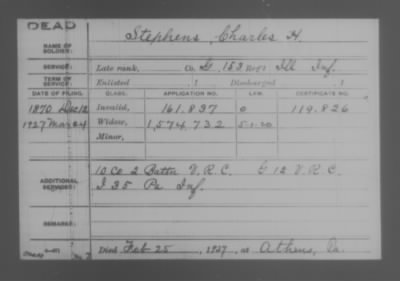 DEAD
NAME OF SOLDIER: Stephens, Charles H.
SERVICE: Late rank, Co. G, 153 Reg't Ill Inf.
TERM OF SERVICE: Enlisted , 1 Discharged , 1
DATE OF FILING. CLASS. APPLICATION NO. LAW. CERTIFICATE NO.
1870 Dec 12 Invalid, 161.837 0 119.826
1927 Mar 24 Widow, 1,574,732 5-1-20
Minor,
ADDITIONAL SERVICES: 10 Co 2 Batta V.R.C. G 12 V.R.C.
I 35 Pa Inf.
REMARKS:
Died Feb 25, 1927, at Athens, Pa.